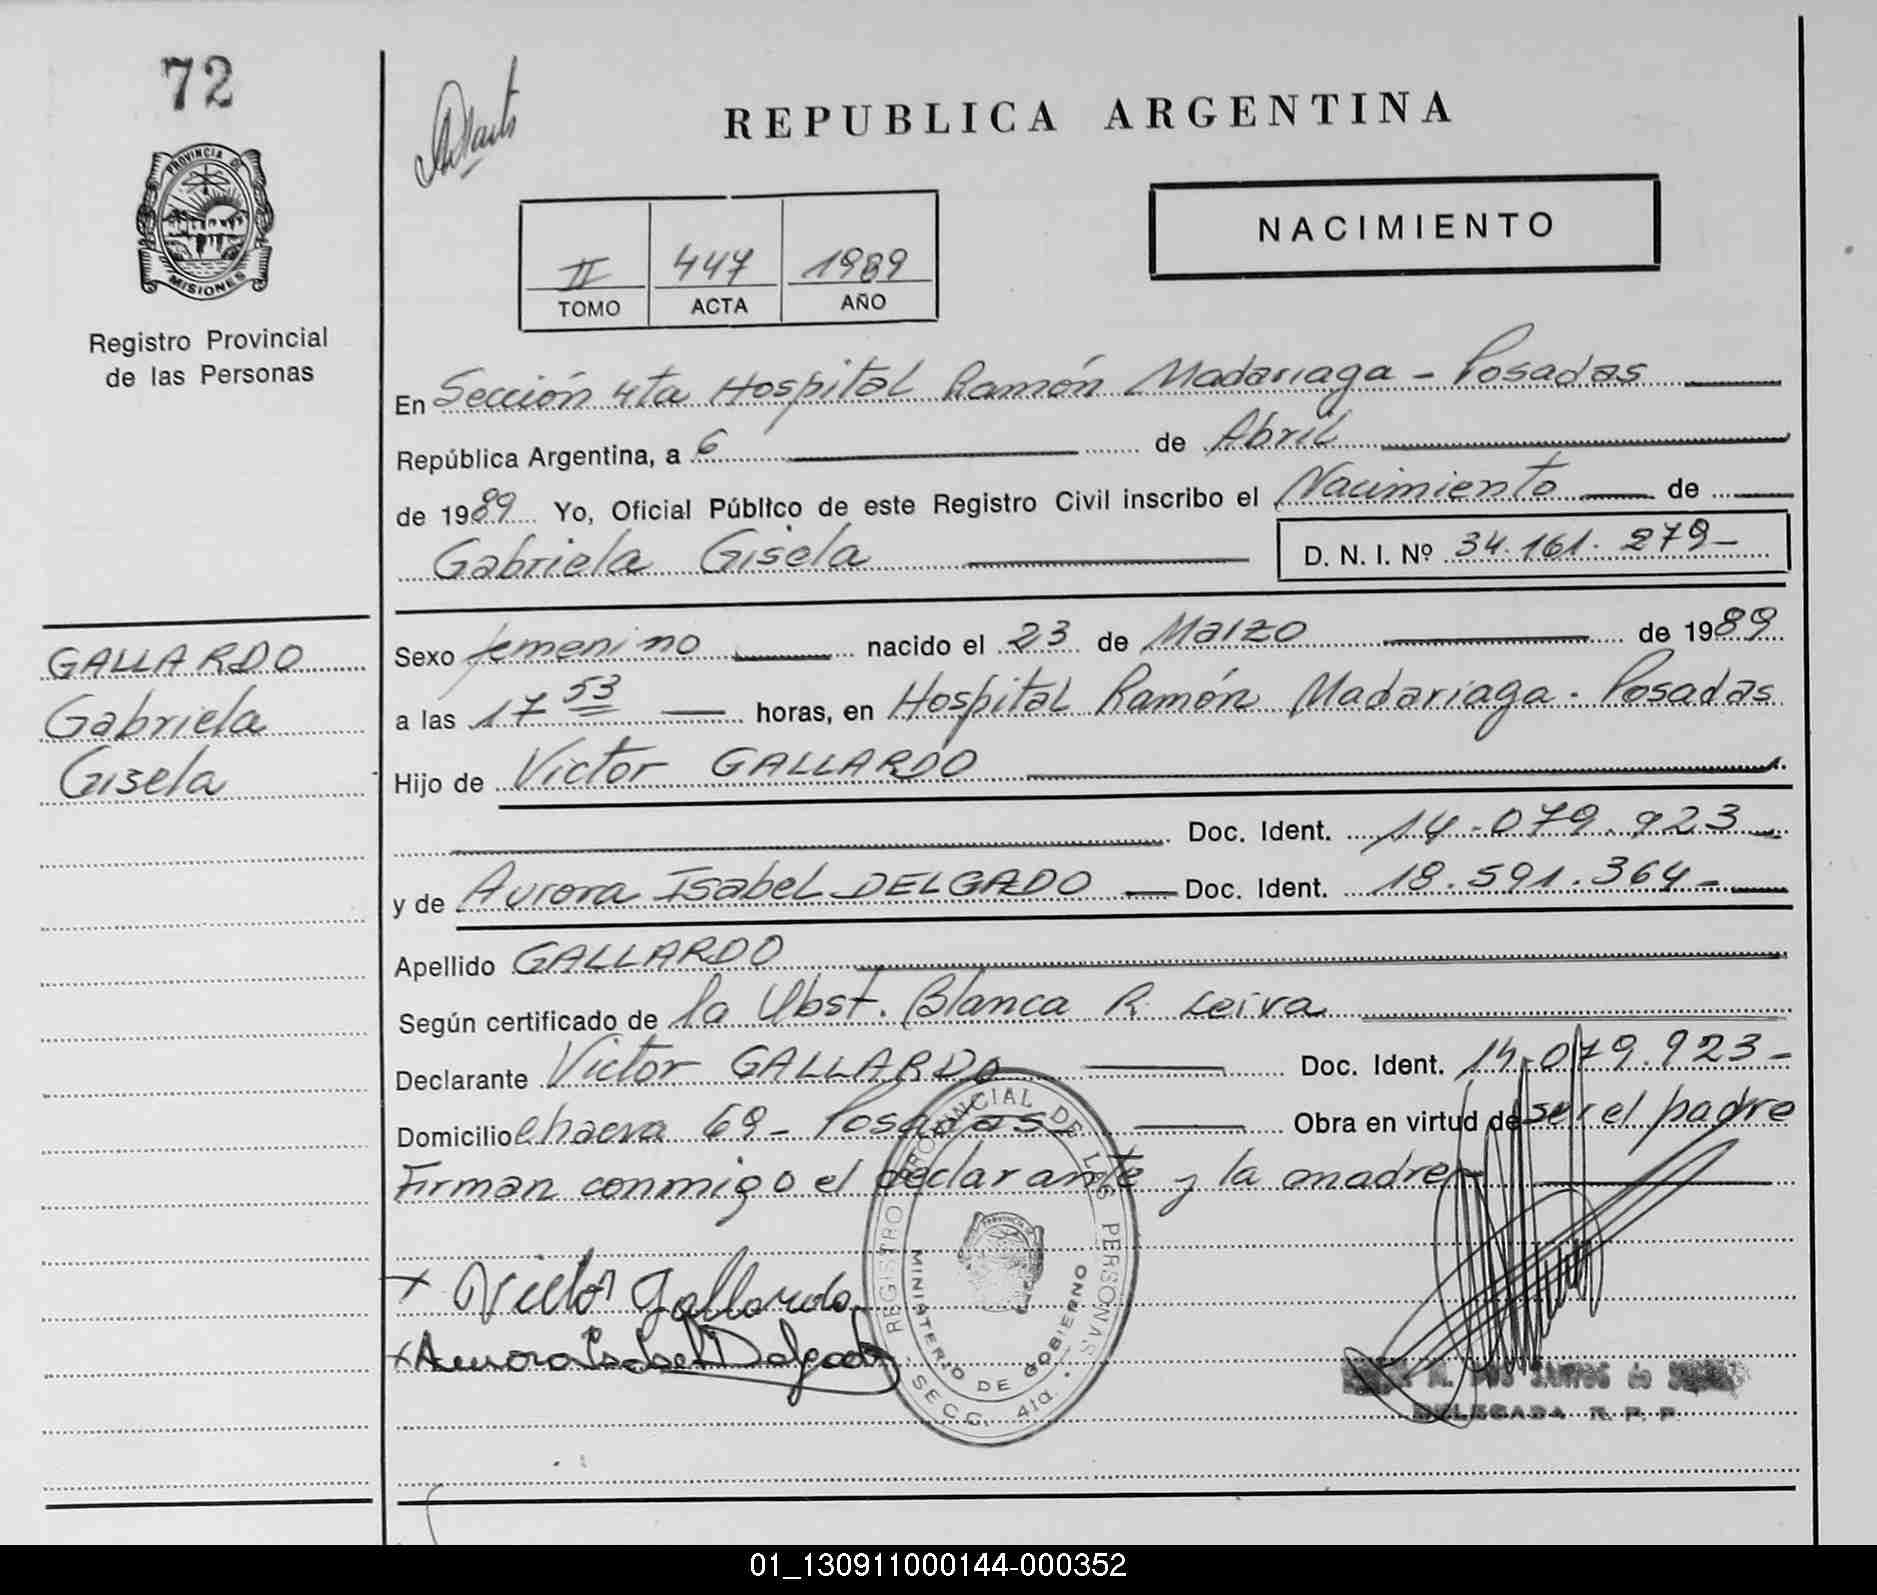 72
PROVINCIA DE
MISIONES
Registro Provincial
de las Personas
REPUBLICA ARGENTINA
NACIMIENTO
II 447 1989
TOMO ACTA AÑO
En Sección 4ta Hospital Ramón Madariaga - Posadas
República Argentina, a 6 de Abril
de 1989 Yo, Oficial Público de este Registro Civil inscribo el Nacimiento de
Gabriela Gisela D. N. I. Nº 34.161.279-
GALLARDO
Gabriela
Gisela
Sexo femenino nacido el 23 de Marzo de 1989
a las 17 53 horas, en Hospital Ramón Madariaga - Posadas
Hijo de Victor GALLARDO
Doc. Ident. 14.079.923
y de Aurora Isabel DELGADO Doc. Ident. 18.591.364-
Apellido GALLARDO
Según certificado de la Obst. Blanca R. Leiva
Declarante Victor GALLARDO Doc. Ident. 14.079.923-
Domicilio 69 - Posadas - Obra en virtud de ser el padre
Firman conmigo el declarante y la madre
x Victor Gallardo
x Aurora Isabel Delgado
REGISTRO PROVINCIAL DE LAS PERSONAS
MINISTERIO DE GOBIERNO
SECC. 4ta.
M. DOS SANTOS de
DELEGADA R. P. P.
01_130911000144-000352